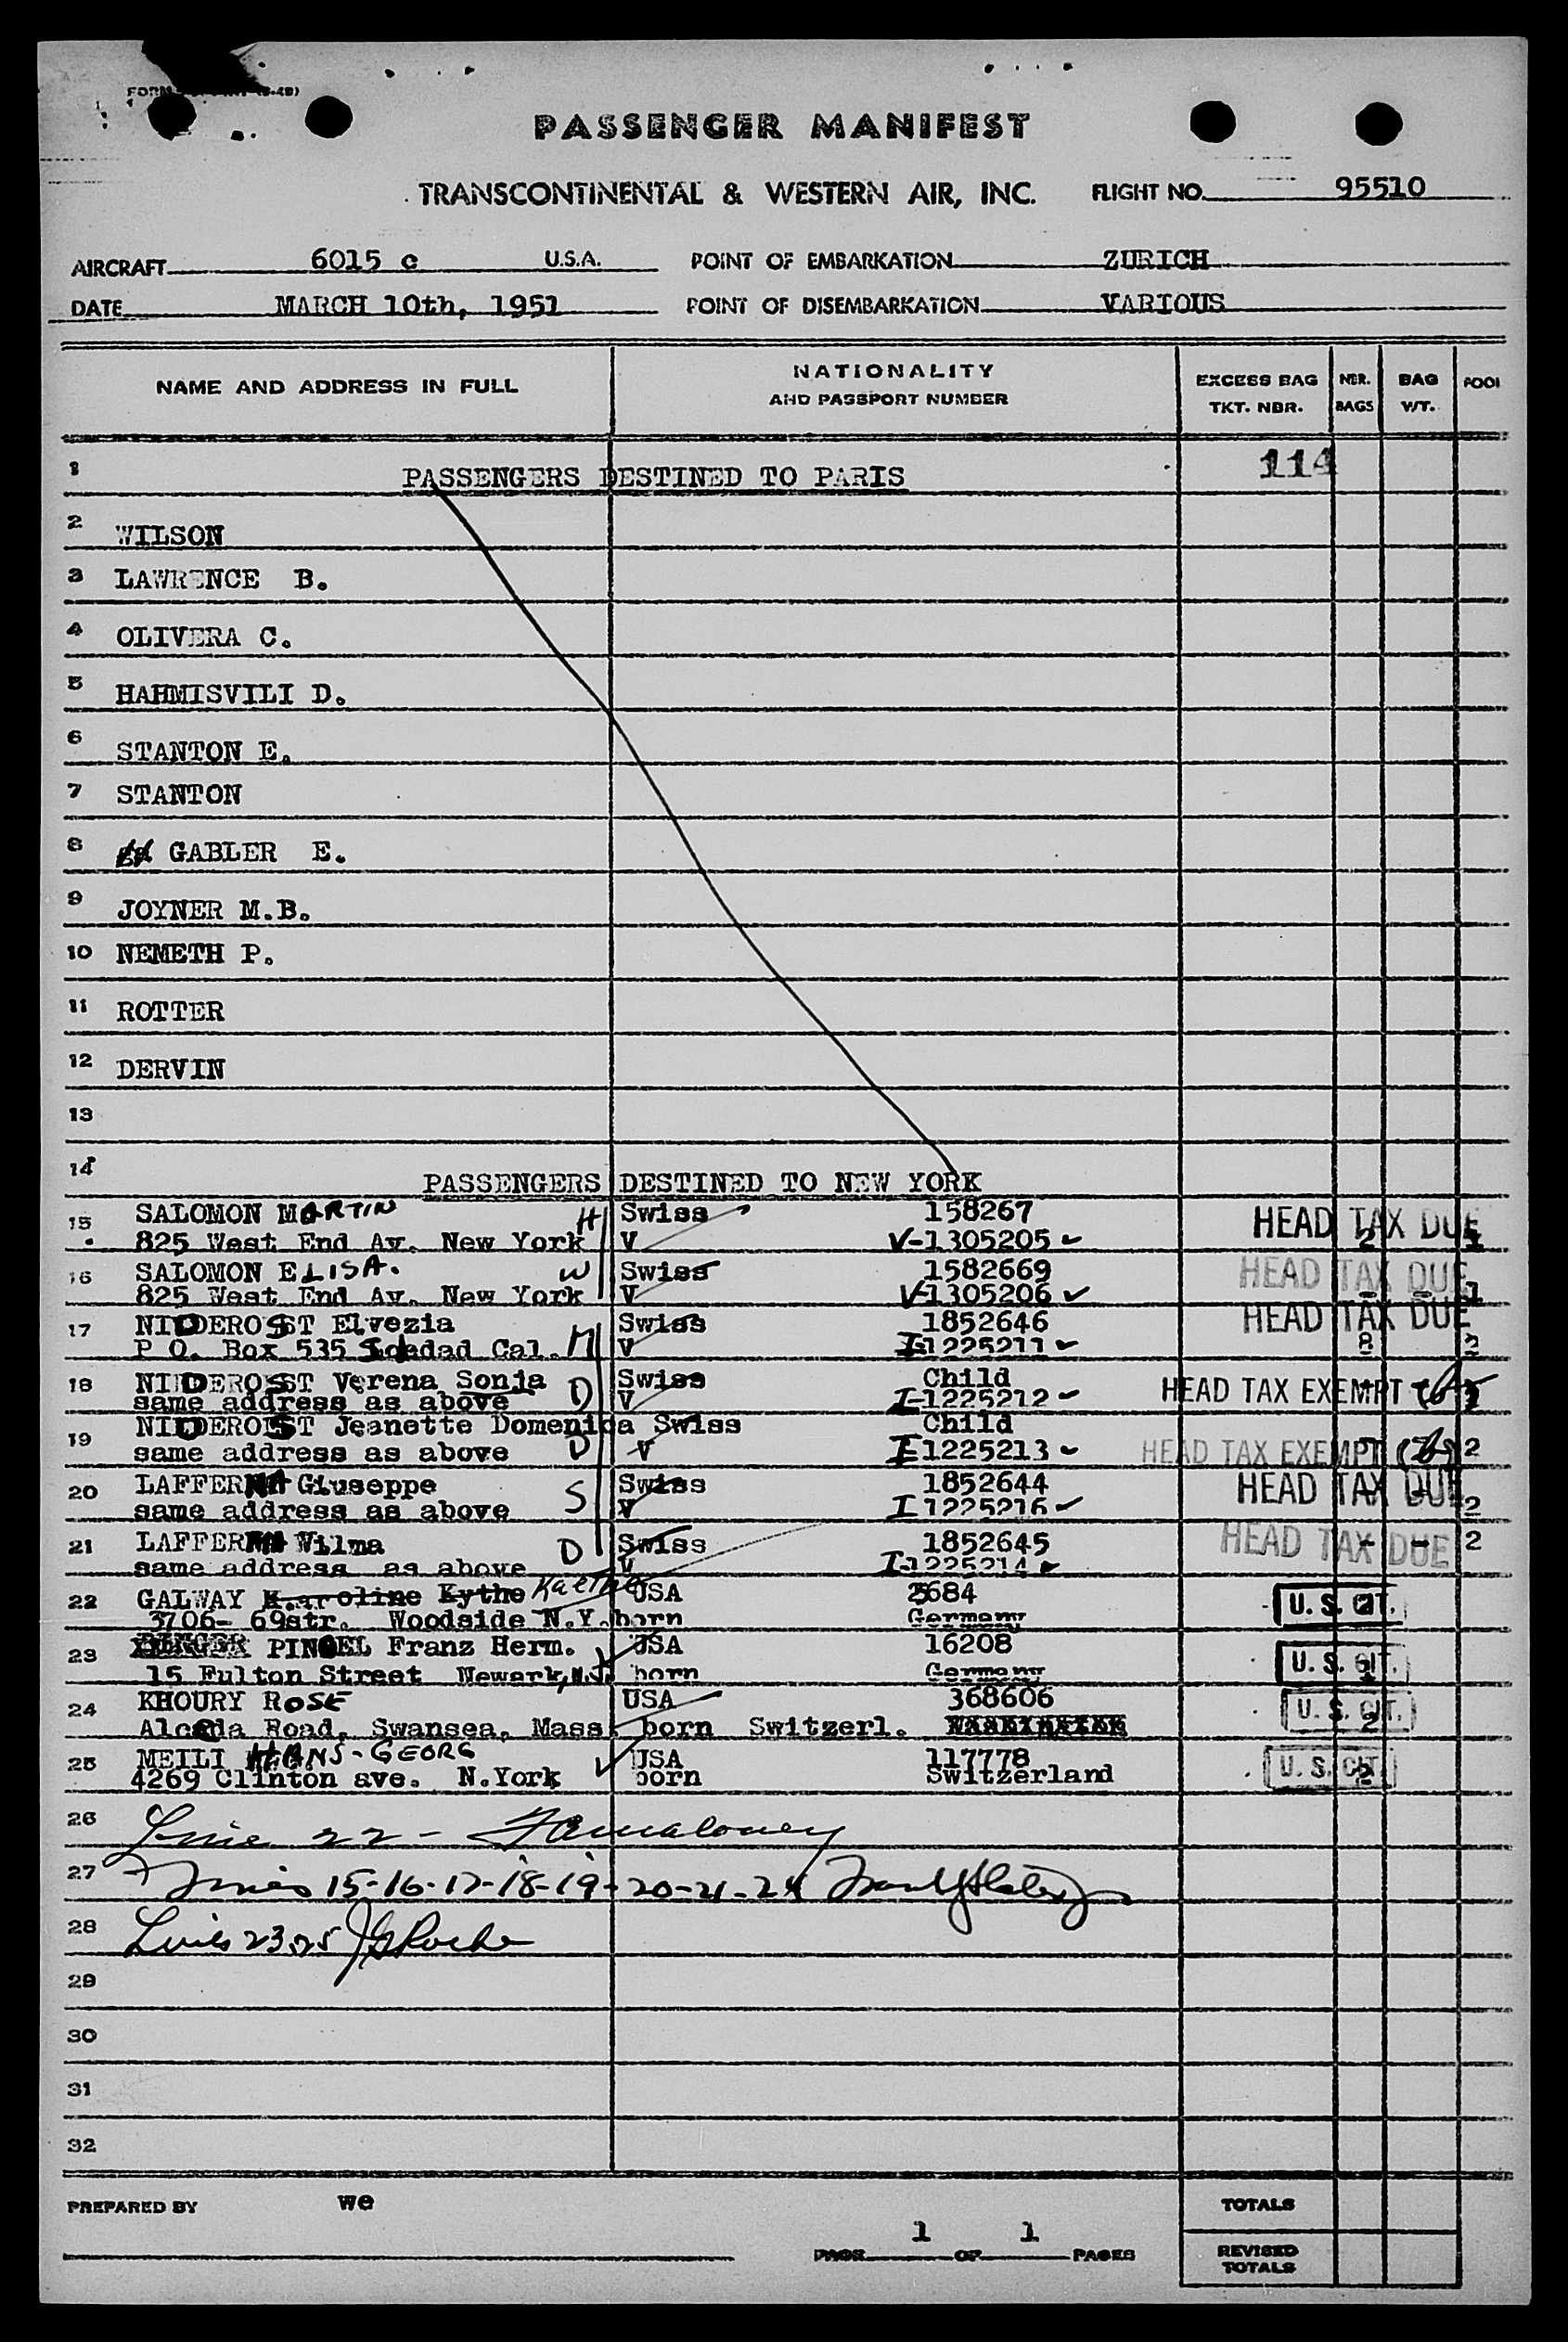 PASSENGER MANIFEST
TRANSCONTINENTAL & WESTERN AIR, INC. FLIGHT NO. 95510
AIRCRAFT 6015 c U.S.A. POINT OF EMBARKATION ZURICH
DATE MARCH 10th, 1951 POINT OF DISEMBARKATION VARIOUS
NAME AND ADDRESS IN FULL NATIONALITY AND PASSPORT NUMBER EXCESS BAG TKT. NBR. NBR. BAGS BAG WT. POOL
1 PASSENGERS DESTINED TO PARIS 114
2 WILSON
3 LAWRENCE B.
4 OLIVERA C.
5 HAHMISVILI D.
6 STANTON E.
7 STANTON
8 GABLER E.
9 JOYNER M.B.
10 NEMETH P.
11 ROTTER
12 DERVIN
13
14 PASSENGERS DESTINED TO NEW YORK
15 SALOMON MARTIN H Swiss 158267 HEAD TAX DUE
825 West End Av. New York V V-1305205 2 1
16 SALOMON ELISA. W Swiss 1582669 HEAD TAX DUE
825 West End Av. New York V V-1305206 - - 1
17 NIDEROST Elvezia Swiss 1852646 HEAD TAX DUE
P O. Box 535 Soledad Cal. M V I-1225211 8 2
18 NIDEROST Verena Sonja D Swiss Child HEAD TAX EXEMPT
same address as above V I-1225212
19 NIDEROST Jeanette Domenica Swiss Child
same address as above D V I-1225213 HEAD TAX EXEMPT 2
20 LAFFERMA Giuseppe S Swiss 1852644 HEAD TAX DUE
same address as above V I 1225216 2
21 LAFFERMA Wilma D Swiss 1852645 HEAD TAX DUE 2
same address as above V I-1225214
22 GALWAY Karoline Kythe Kaethe USA 5684 U. S. CIT.
3706- 69str. Woodside N.Y. born Germany
23 PINGEL Franz Herm. USA 16208 U. S. CIT.
15 Fulton Street Newark, N.J. born Germany
24 KHOURY ROSE USA 368606 U. S. CIT.
Alceda Road, Swansea, Mass born Switzerl. 2
25 MEILI HANS-GEORG USA 117778 U. S. CIT.
4269 Clinton ave. N.York born Switzerland 2
26 Line 22 -
27 Lines 15-16-17-18-19-20-21-24
28 Lines 23, 25 Roche
29
30
31
32
PREPARED BY we TOTALS
PAGE 1 OF 1 PAGES REVISED TOTALS